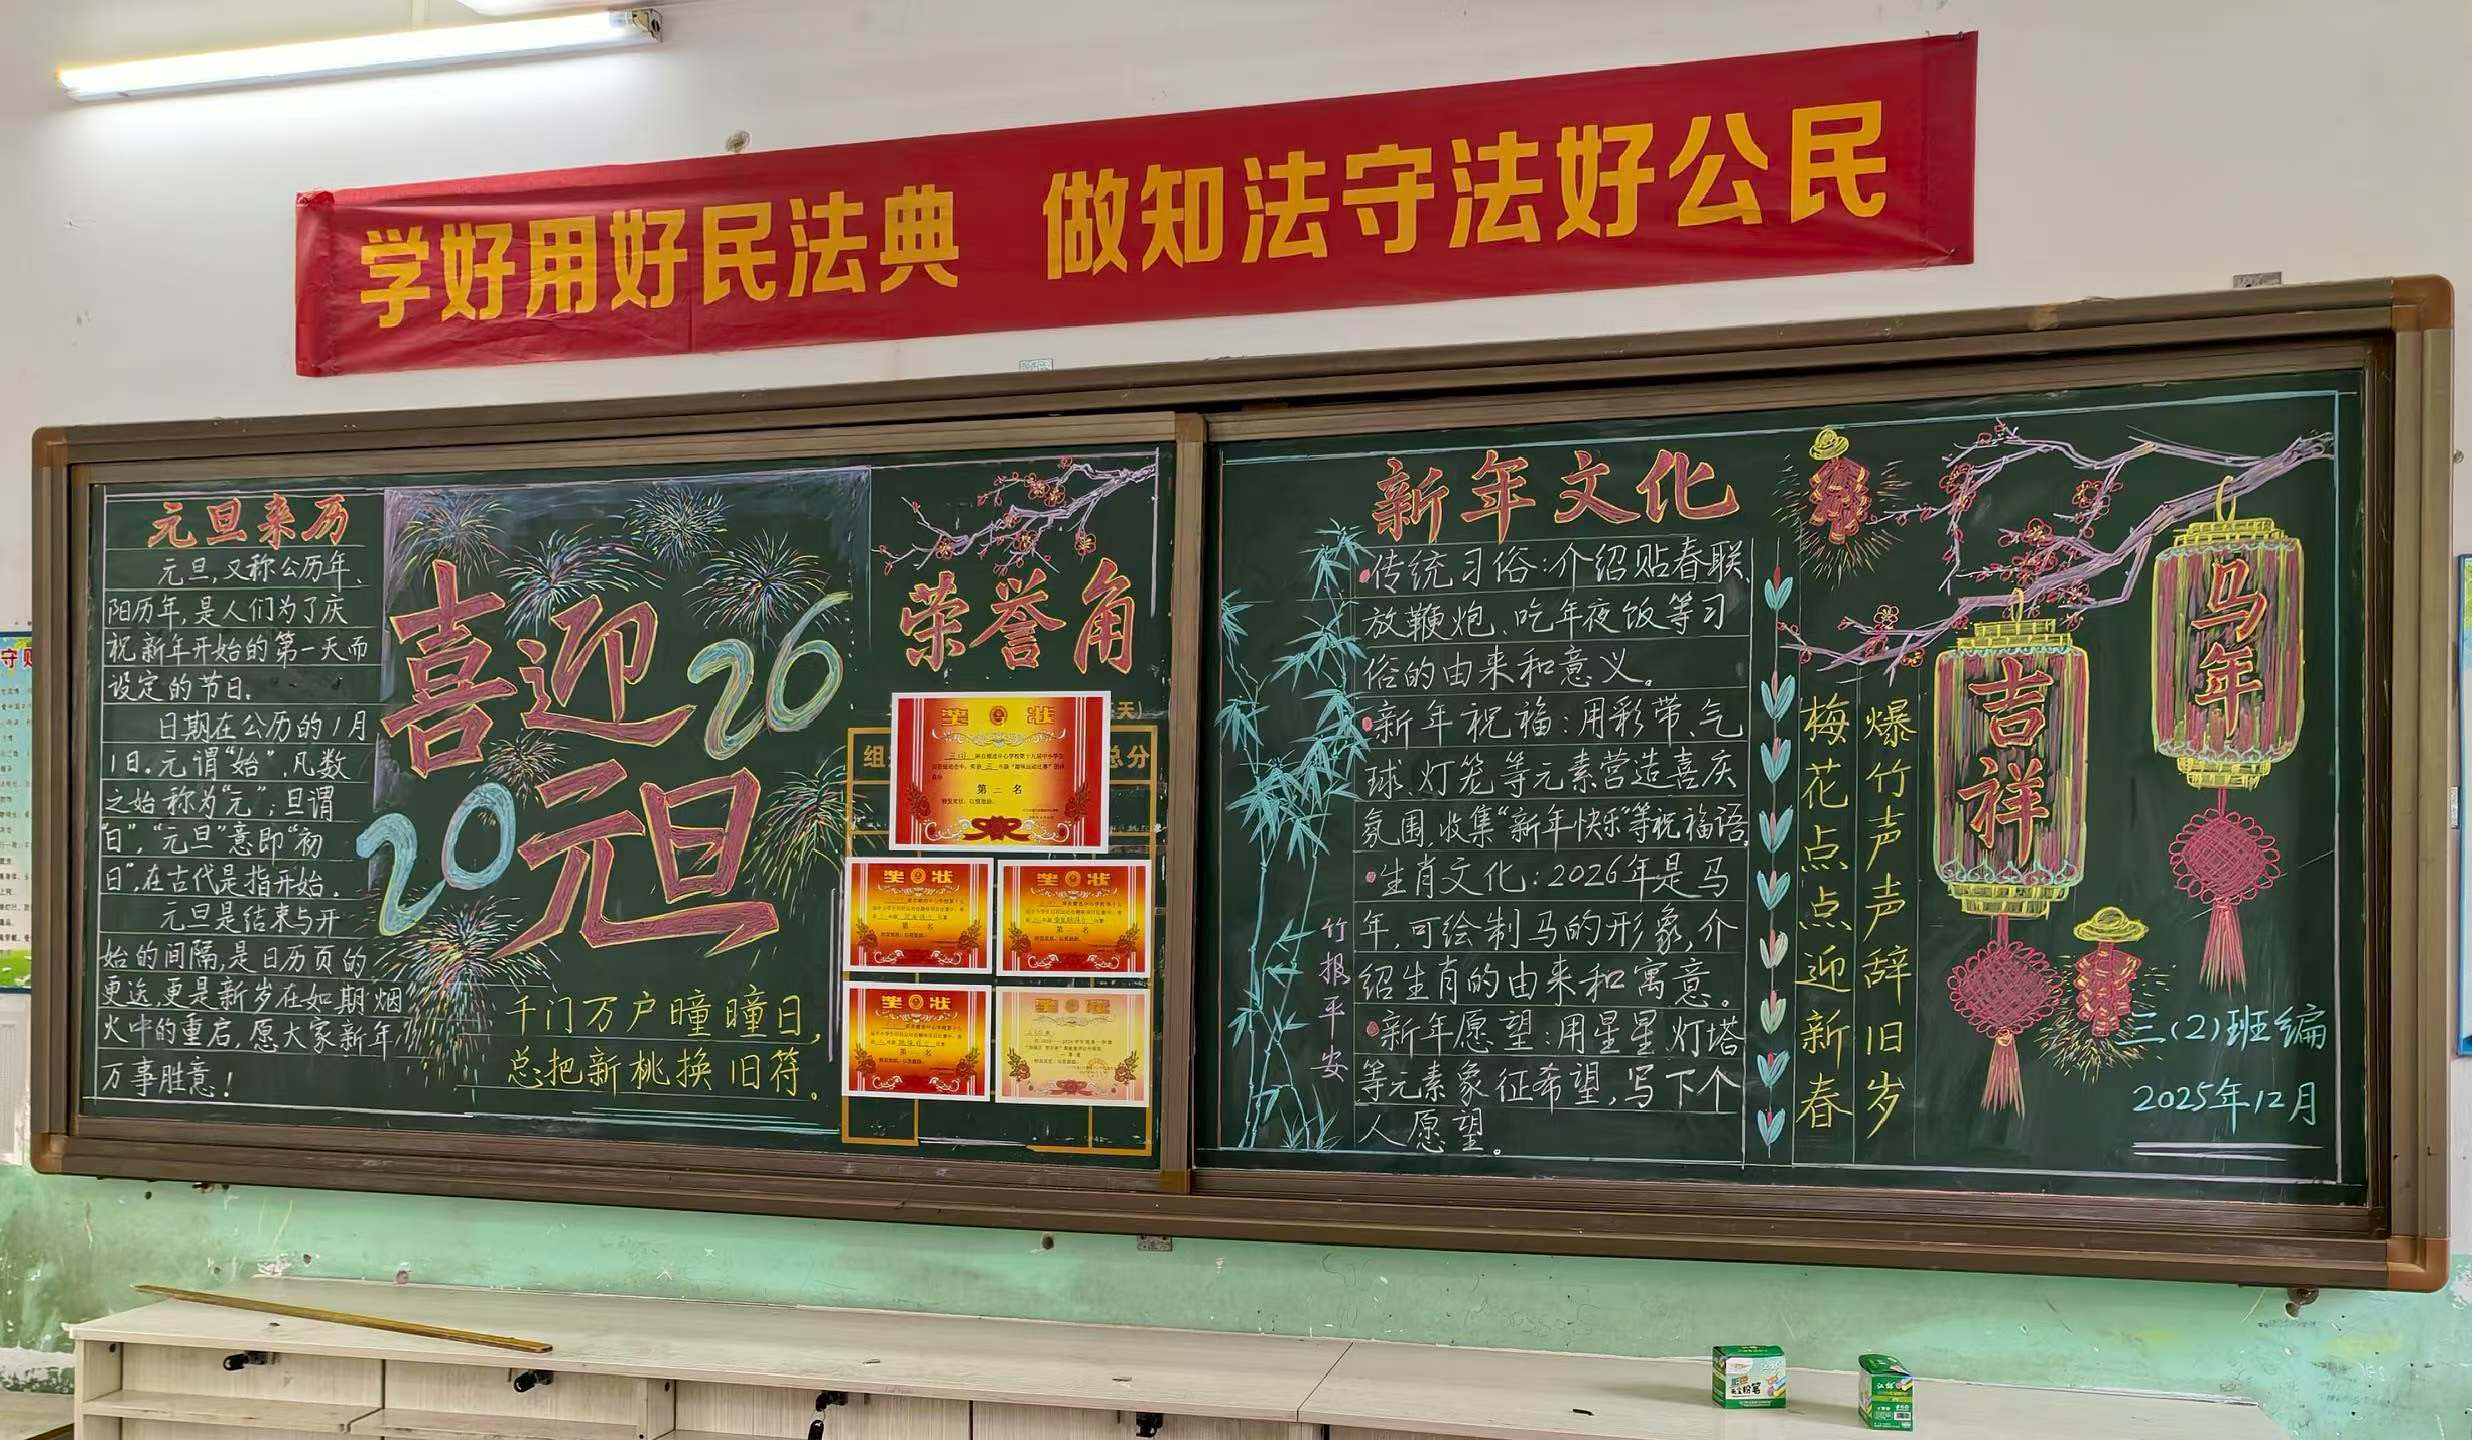 学好用好民法典 做知法守法好公民
元旦来历
元旦,又称公历年、
阳历年,是人们为了庆
祝新年开始的第一天而
设定的节日。
日期在公历的1月
1日。元谓“始”,凡数
之始称为“元”;旦谓
“日”,“元旦”意即“初
日”,在古代是指开始。
元旦是结束与开
始的间隔,是日历页的
更迭,更是新岁在如期烟
火中的重启,愿大家新年
万事胜意!
喜迎
2026
元旦
千门万户曈曈日,
总把新桃换旧符。
荣誉角
天)
组
总分
奖状
第二名
奖状
第二名
奖状
第二名
奖状
第一名
奖状
新年文化
传统习俗:介绍贴春联、
放鞭炮、吃年夜饭等习
俗的由来和意义。
新年祝福:用彩带、气
球、灯笼等元素营造喜庆
氛围,收集“新年快乐”等祝福语。
生肖文化:2026年是马
年,可绘制马的形象,介
绍生肖的由来和寓意。
新年愿望:用星星灯塔
等元素象征希望,写下个
人愿望。
竹报平安
爆竹声声辞旧岁
梅花点点迎新春
马年
吉祥
三(2)班编
2025年12月
粉笔